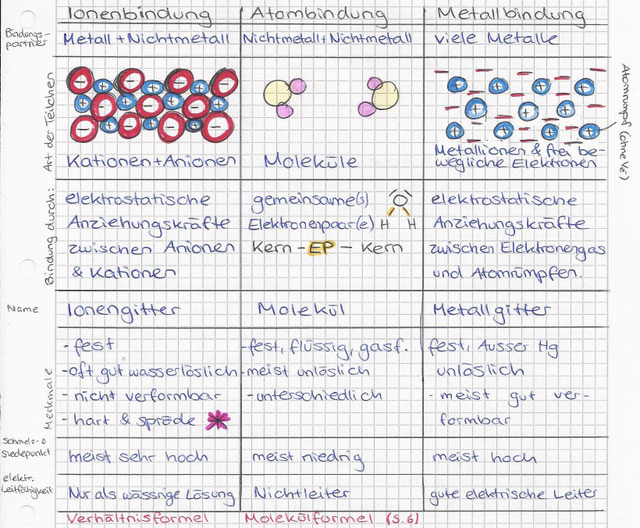 Ionenbindung Atombindung Metallbindung
Bindungs-
partner
Metall + Nichtmetall Nichtmetall + Nichtmetall viele Metalle
Art der Teilchen
Atomrumpf (ohne Ve⁻)
Kationen + Anionen Moleküle Metallionen & frei be-
wegliche Elektronen
Bindung durch:
elektrostatische gemeinsame(s) O elektrostatische
Anziehungskräfte Elektronenpaar(e) H H Anziehungskräfte
zwischen Anionen Kern - EP - Kern zwischen Elektronengas
& Kationen und Atomrümpfen.
Name Ionengitter Molekül Metallgitter
Merkmale
- fest - fest, flüssig, gasf. fest, Ausser Hg
- oft gut wasserlöslich - meist unlöslich unlöslich
- nicht verformbar - unterschiedlich - meist gut ver-
- hart & spröde * formbar
Schmelz- &
Siedepunkt
meist sehr hoch meist niedrig meist hoch
elektr.
Leitfähigkeit
Nur als wässrige Lösung Nichtleiter gute elektrische Leiter
Verhältnisformel Molekülformel (S.6)